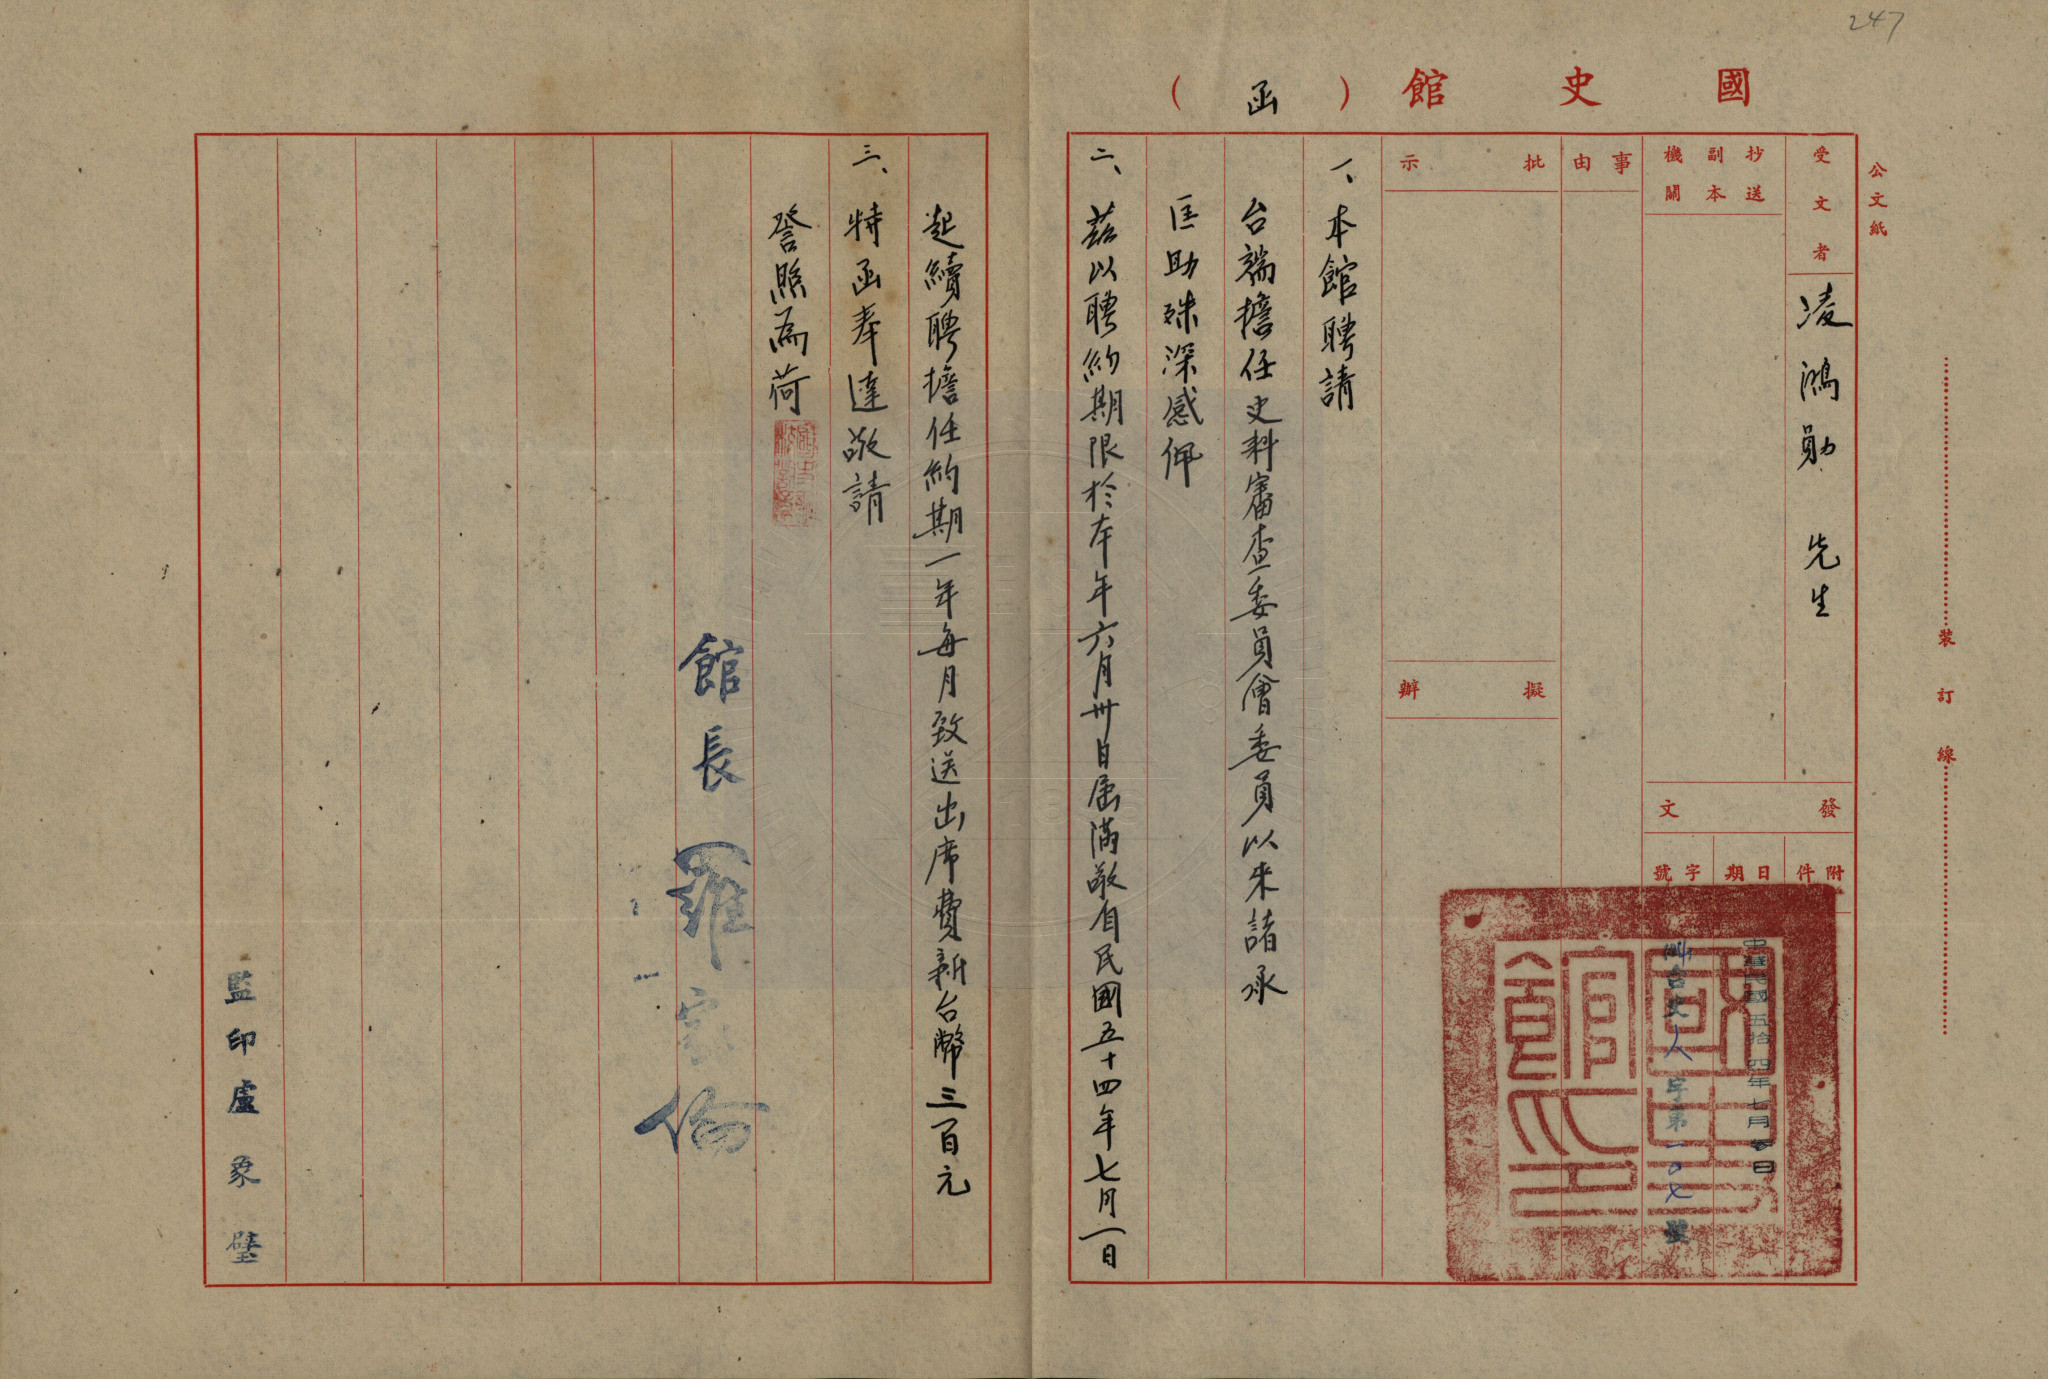 247
國史館（函）
公文紙
受文者
凌鴻勛 先生
抄送副本機關
事由
批示
擬辦
發文
附件
日期
字號
中華民國五拾四年七月參日
台史人字第一〇七號
國史館之印
裝訂線
一、本館聘請
台端擔任史料審查委員會委員以來諸承
匡助殊深感佩
二、茲以聘約期限於本年六月卅日屆滿敬自民國五十四年七月一日
起續聘擔任約期一年每月致送出席費新台幣三百元
三、特函奉達敬請
詧照為荷
館長 羅家倫
監印盧象璧